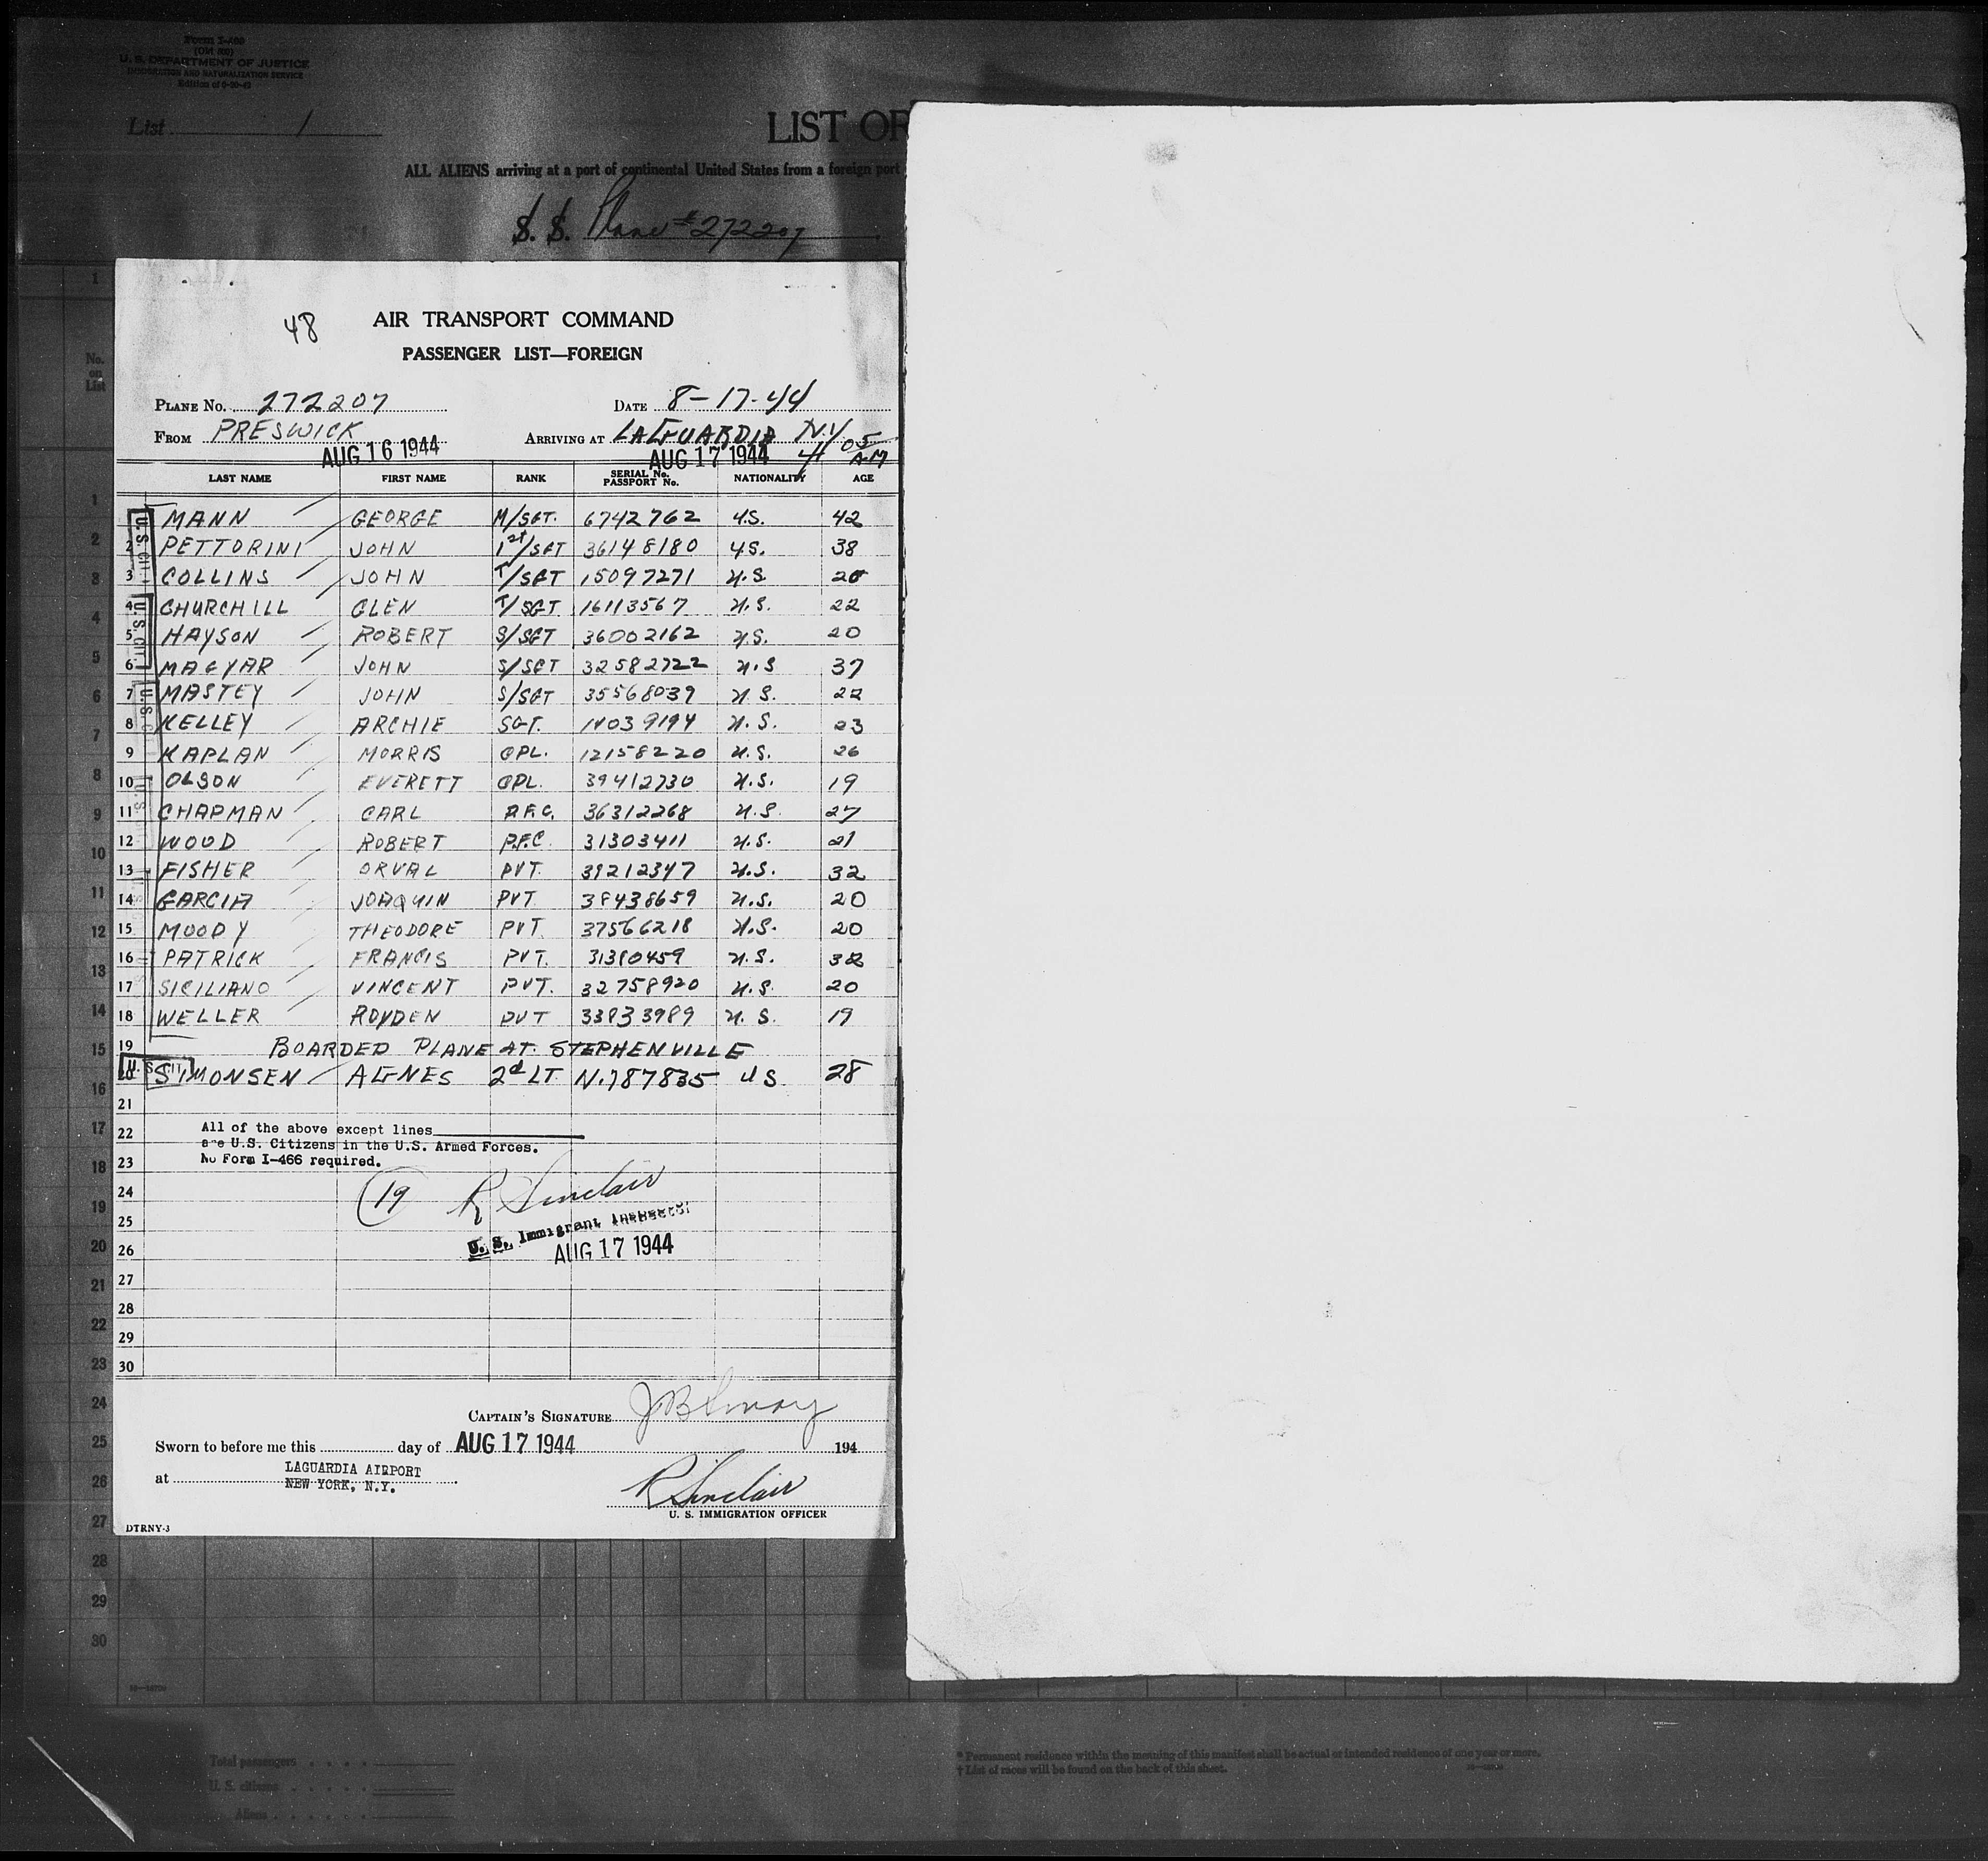 Form I-466
(Old 500)
U. S. DEPARTMENT OF JUSTICE
IMMIGRATION AND NATURALIZATION SERVICE
List 1
LIST OF
ALL ALIENS arriving at a port of continental United States from a foreign port
S. S. Plane # 272207
No. on List
48 AIR TRANSPORT COMMAND
PASSENGER LIST—FOREIGN
PLANE NO. 272207 DATE 8-17-44
FROM PRESWICK ARRIVING AT LAGUARDIA N.Y.
AUG 16 1944 AUG 17 1944 4 05 AM
LAST NAME FIRST NAME RANK SERIAL No. PASSPORT No. NATIONALITY AGE
1 MANN GEORGE M/SGT. 6742762 U.S. 42
2 PETTORINI JOHN 1st/SGT 36148180 U.S. 38
3 COLLINS JOHN T/SGT 15097271 U.S.
4 CHURCHILL GLEN T/SGT 16113567 U.S. 22
5 HAYSON ROBERT S/SGT 36002162 U.S. 20
6 MAGYAR JOHN S/SGT 32582722 U.S 37
7 MASTEY JOHN S/SGT 35568039 U.S. 22
8 KELLEY ARCHIE SGT. 14039194 U.S. 23
9 KAPLAN MORRIS CPL. 12158220 U.S. 26
10 OLSON EVERETT CPL. 39412730 U.S. 19
11 CHAPMAN CARL P.F.C. 36312268 U.S. 27
12 WOOD ROBERT P.F.C. 31303411 U.S. 21
13 FISHER ORVAL PVT. 39212347 U.S. 32
14 GARCIA JOAQUIN PVT 38438659 U.S. 20
15 MOODY THEODORE PVT. 37566218 U.S. 20
16 PATRICK FRANCIS PVT. 31380459 U.S.
17 SICILIANO VINCENT PVT. 32758920 U.S. 20
18 WELLER ROYDEN PVT 33833989 U.S. 19
19 BOARDED PLANE AT STEPHENVILLE
20 SIMONSEN AGNES 2d LT N.787835 US 28
21
22 All of the above except lines
are U.S. Citizens in the U.S. Armed Forces.
23 No Form I-466 required.
24 19 R Sinclair
25 U. S. Immigrant Inspector
26 AUG 17 1944
27
28
29
30
CAPTAIN'S SIGNATURE
Sworn to before me this day of AUG 17 1944 194
at LAGUARDIA AIRPORT
NEW YORK, N.Y.
R Sinclair
U. S. IMMIGRATION OFFICER
DTRNY-3
Total passengers
U. S. citizens
Aliens
* Permanent residence within the meaning of this manifest shall be actual or intended residence of one year or more.
† List of races will be found on the back of this sheet.